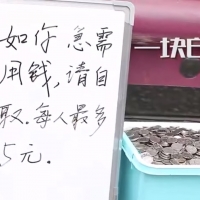 如你急需
用钱,请自
取.每人最多
5元.
一块